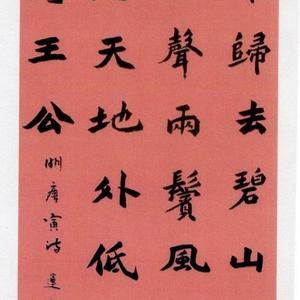 歸去碧山
聲雨鬢風
天地外低
王公
明唐寅詩